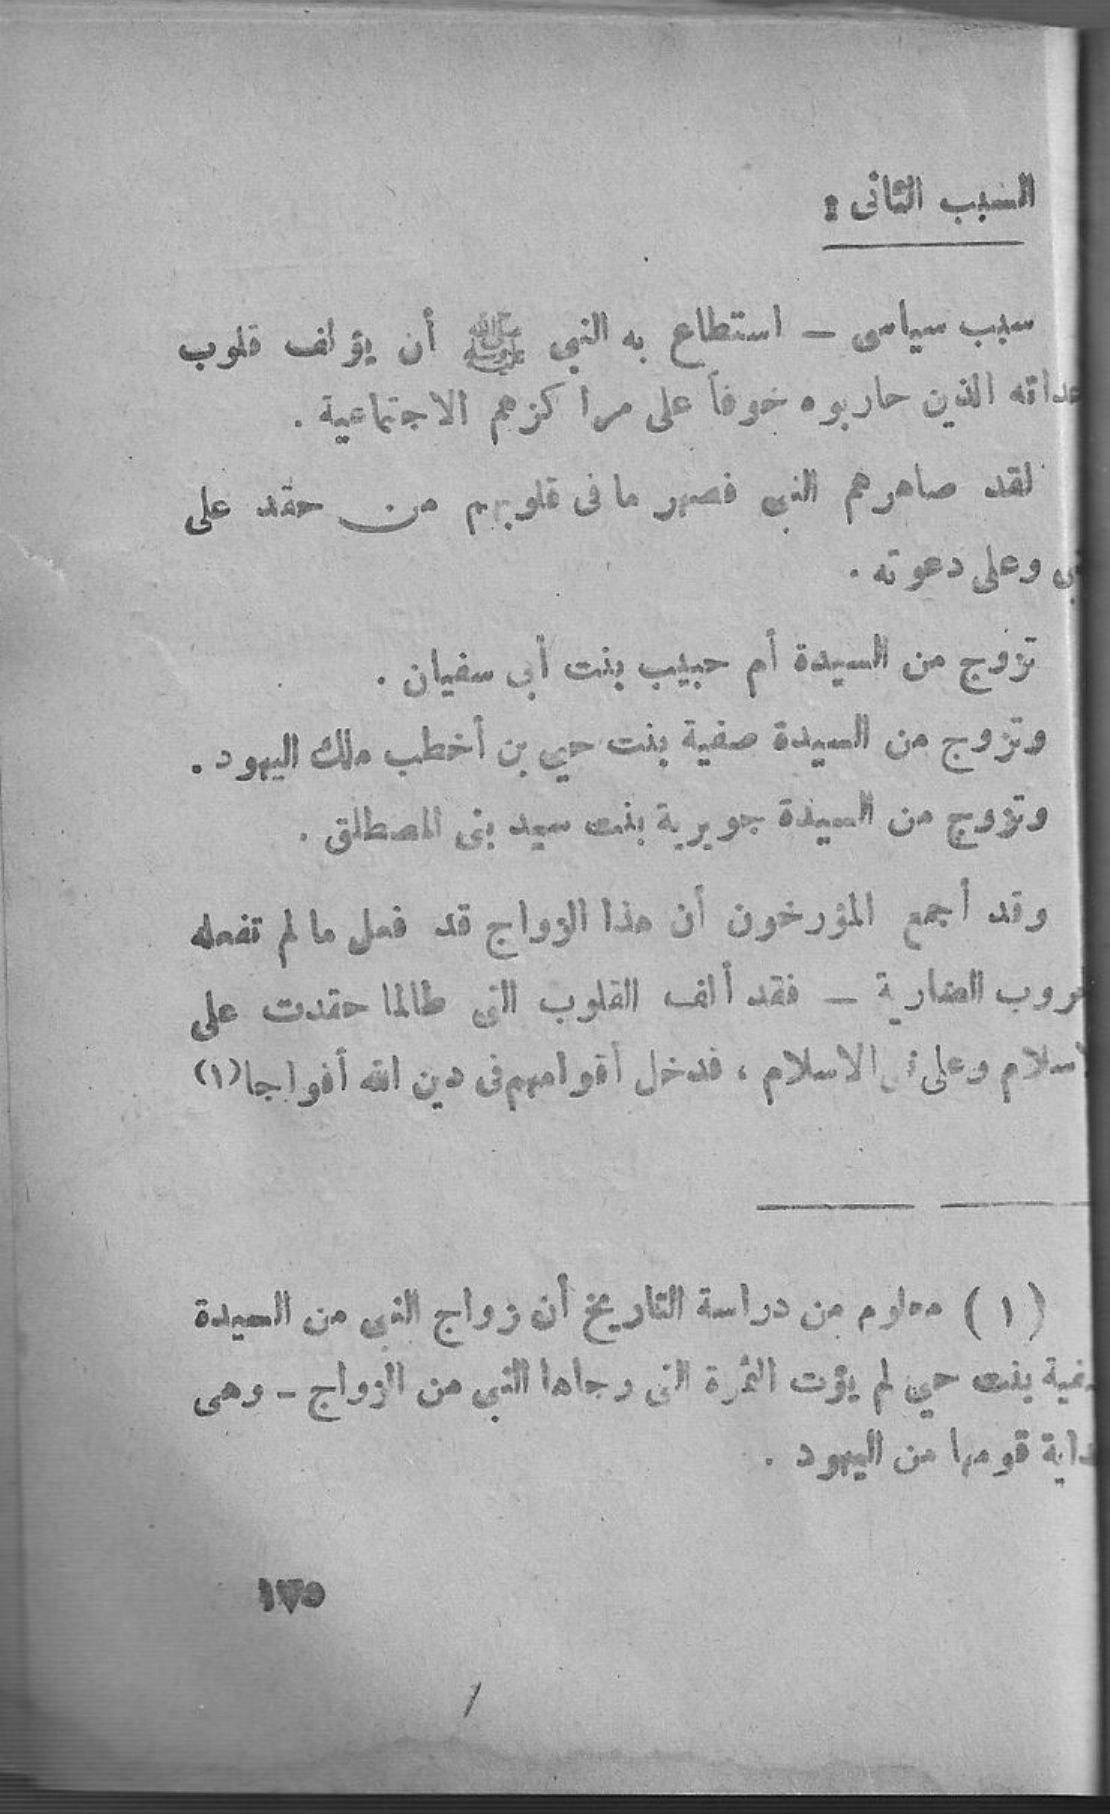 السبب الثانى :
سبب سياسى – استطاع به النبي ﷺ أن يؤلف قلوب
عدائه الذين حاربوه خوفاً على مراكزهم الاجتماعية .
لقد صاهرهم النبى فصهر ما فى قلوبهم من حقد على
بى وعلى دعوته .
تزوج من السيدة أم حبيب بنت أبى سفيان .
وتزوج من السيدة صفية بنت حيي بن أخطب ملك اليهود .
وتزوج من السيدة جويرية بنت سيد بنى المصطلق .
وقد أجمع المؤرخون أن هذا الزواج قد فعل ما لم تفعله
روب الضارية – فقد ألف القلوب التى طالما حقدت على
اسلام وعلى الاسلام ، فدخل أقوامهم فى دين الله أفواجا (١)
( ١ ) معلوم من دراسة التاريخ أن زواج النبى من السيدة
فية بنت حيي لم يؤت الثمرة التى رجاها النبي من الزواج – وهى
داية قومها من اليهود .
١٧٥